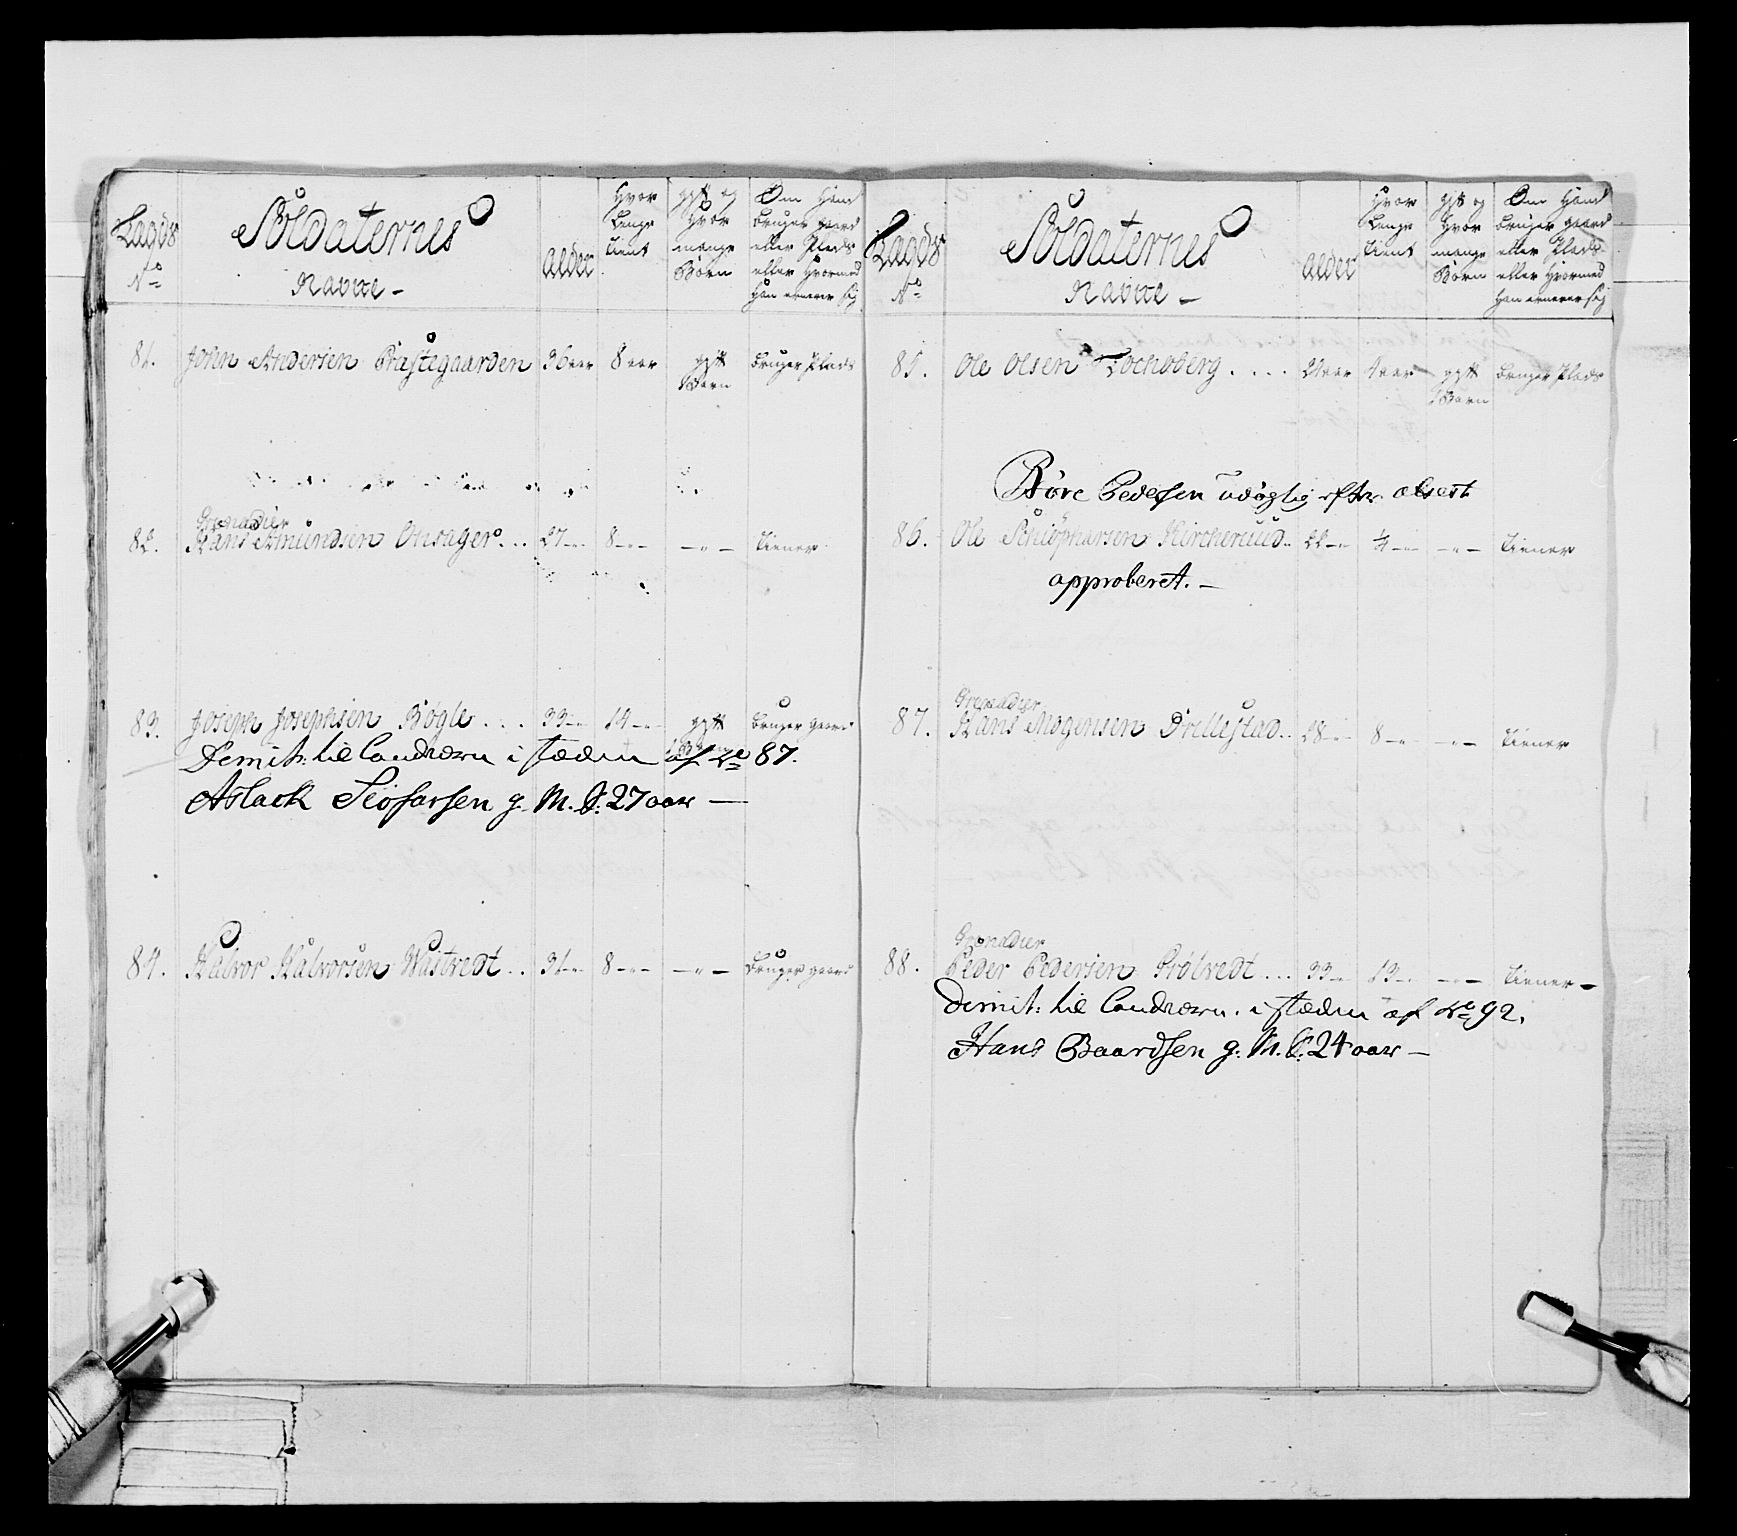 Lagds No
Soldaternes Navne -
alder
Hvor Lenge tient
gift og Hvor mange Børn
Om Hand bruger gaard eller Plads eller Hvormed Han ernerer sig
81. John Andersen Præstegaarden 36 aar 8 aar gift Børn bruger Plads
Grenadier
82. Hans Amundsen Onsager 27 8 - tiener
83. Joseph Josephsen Bøgle 33 14 gift bruger gaard
Børn
Demit: til landværn i stæden af No 87.
Aslack Siofarsen g. M. S. 27 aar —
84. Halvor Halvorsen Wastvedt 31 8 - bruger gaard
Lagds No
Soldaternes Navne -
alder
Hvor Lenge tient
gift og Hvor mange Børn
Om Hand bruger gaard eller Plads eller Hvormed Han ernerer sig
85. Ole Olsen aar aar gift bruger Plads
Børn
Pedersen udøgtig efter
86. Ole Kircheruud 22 - tiener
approberet. —
Grenadier
87. Hans Mogensen 28 8 - tiener
Grenadier
88. Peder Pedersen 33 13 - tiener -
Dimit: til landværn. i stæden af No 92.
Hans Baardsen g. M. S. 24 aar —